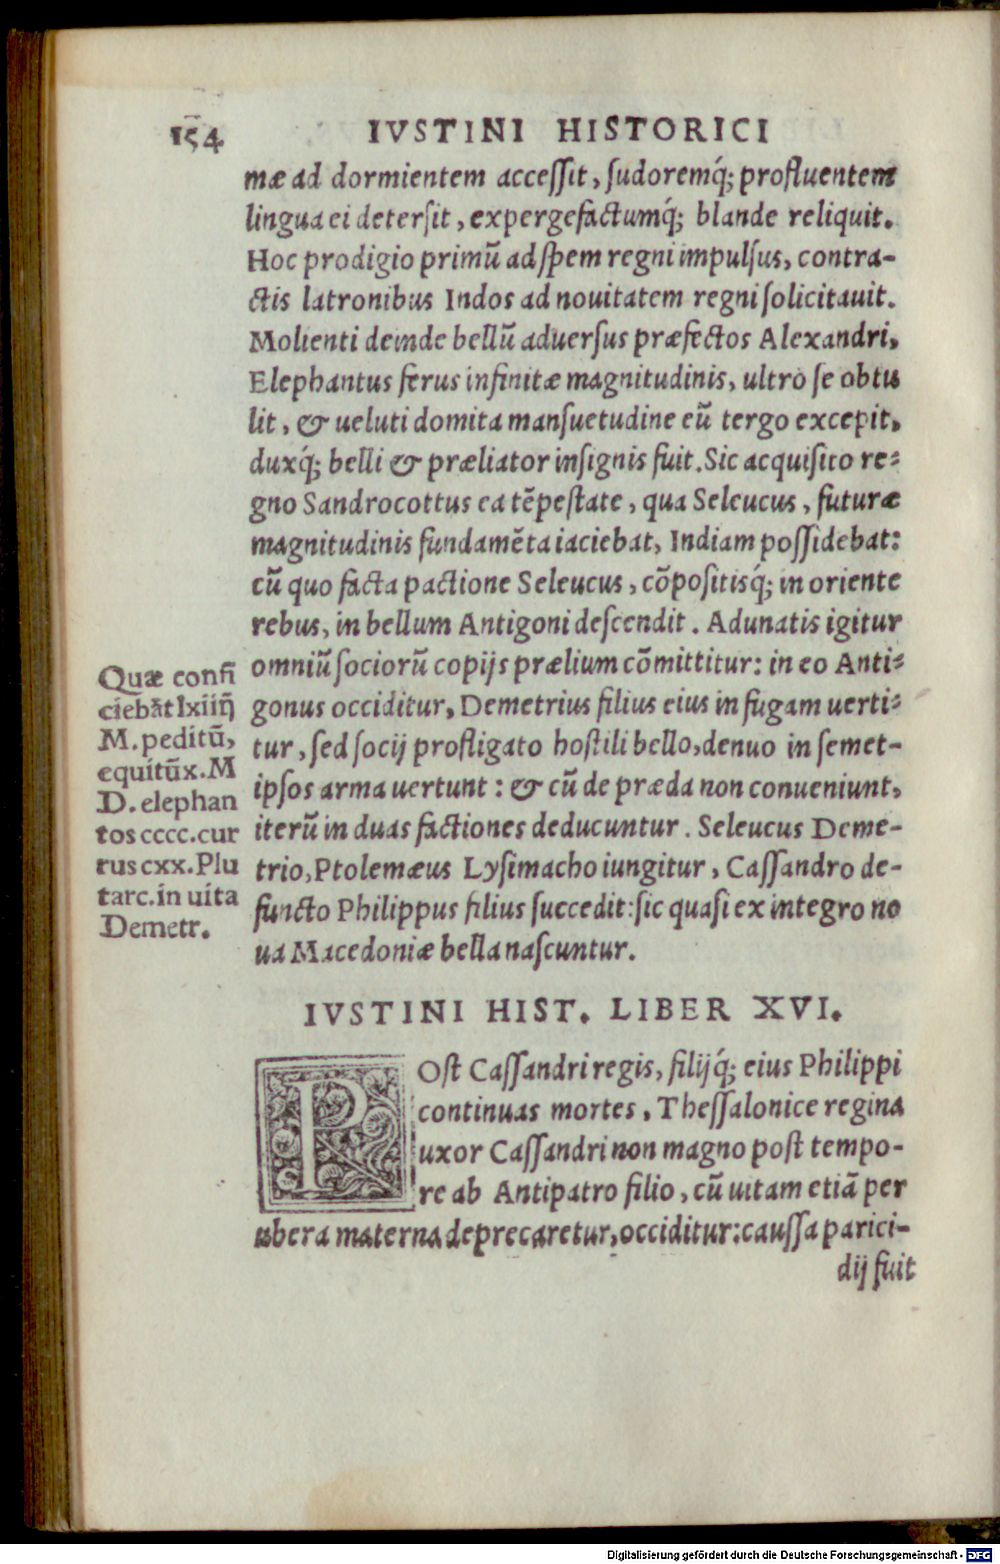 154 IVSTINI HISTORICI
mæ ad dormientem accessit, sudoremq́; profluentem
lingua ei detersit, expergefactumq́; blande reliquit.
Hoc prodigio primũ ad spem regni impulsus, contra-
ctis latronibus Indos ad nouitatem regni solicitauit.
Molienti deinde bellũ aduersus præfectos Alexandri,
Elephantus ferus infinitæ magnitudinis, ultrò se obtu
lit, & ueluti domita mansuetudine eũ tergo excepit,
duxq́; belli & præliator insignis fuit. Sic acquisito re-
gno Sandrocottus ea tẽpestate, qua Seleucus, futuræ
magnitudinis fundamẽta iaciebat, Indiam possidebat:
cũ quo facta pactione Seleucus, cõpositisq́; in oriente
rebus, in bellum Antigoni descendit. Adunatis igitur
omniũ sociorũ copijs prælium cõmittitur: in eo Anti-
gonus occiditur, Demetrius filius eius in fugam uerti-
tur, sed socij profligato hostili bello, denuo in semet-
ipsos arma uertunt: & cũ de præda non conueniunt,
iterũ in duas factiones deducuntur. Seleucus Deme-
trio, Ptolemæus Lysimacho iungitur, Cassandro de-
functo Philippus filius succedit: sic quasi ex integro no
ua Macedoniæ bella nascuntur.
Quæ confi
ciebãt lxiiij
M. peditũ,
equitũ x. M
D. elephan
tos cccc. cur
rus cxx. Plu
tarc. in uita
Demetr.
IVSTINI HIST. LIBER XVI.
POst Cassandri regis, filijq́; eius Philippi
continuas mortes, Thessalonice regina
uxor Cassandri non magno post tempo-
re ab Antipatro filio, cũ uitam etiã per
ubera materna deprecaretur, occiditur: caussa parici-
dij fuit
Digitalisierung gefördert durch die Deutsche Forschungsgemeinschaft - DFG